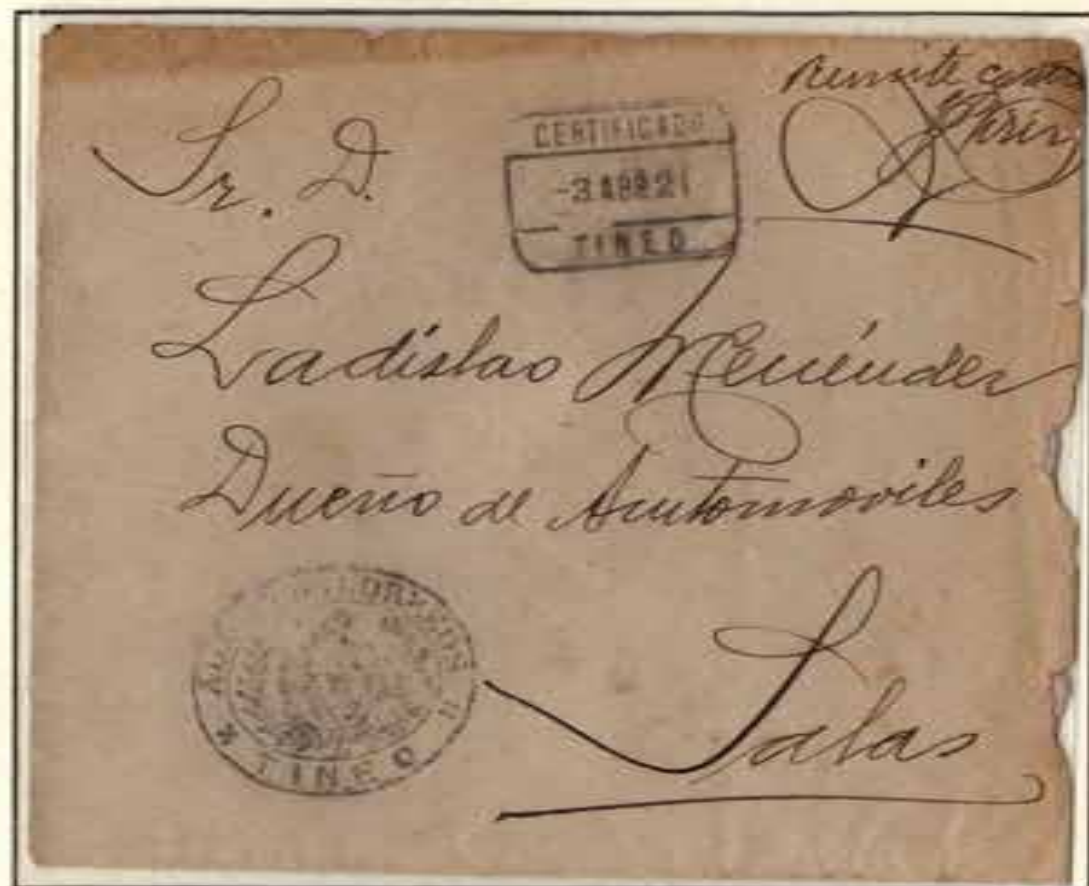 Remite
Sr. D.
CERTIFICADO
-3 ABR 21
TINEO
Ladislao Menéndez
Dueño de Automoviles
Salas
CORREOS
TINEO